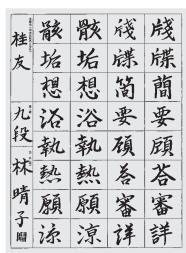 牋牒簡要顧荅審詳
牋牒簡要顧荅審詳
骸垢想浴執熱願涼
骸垢想浴執熱願涼
桂友 九段 林晴子